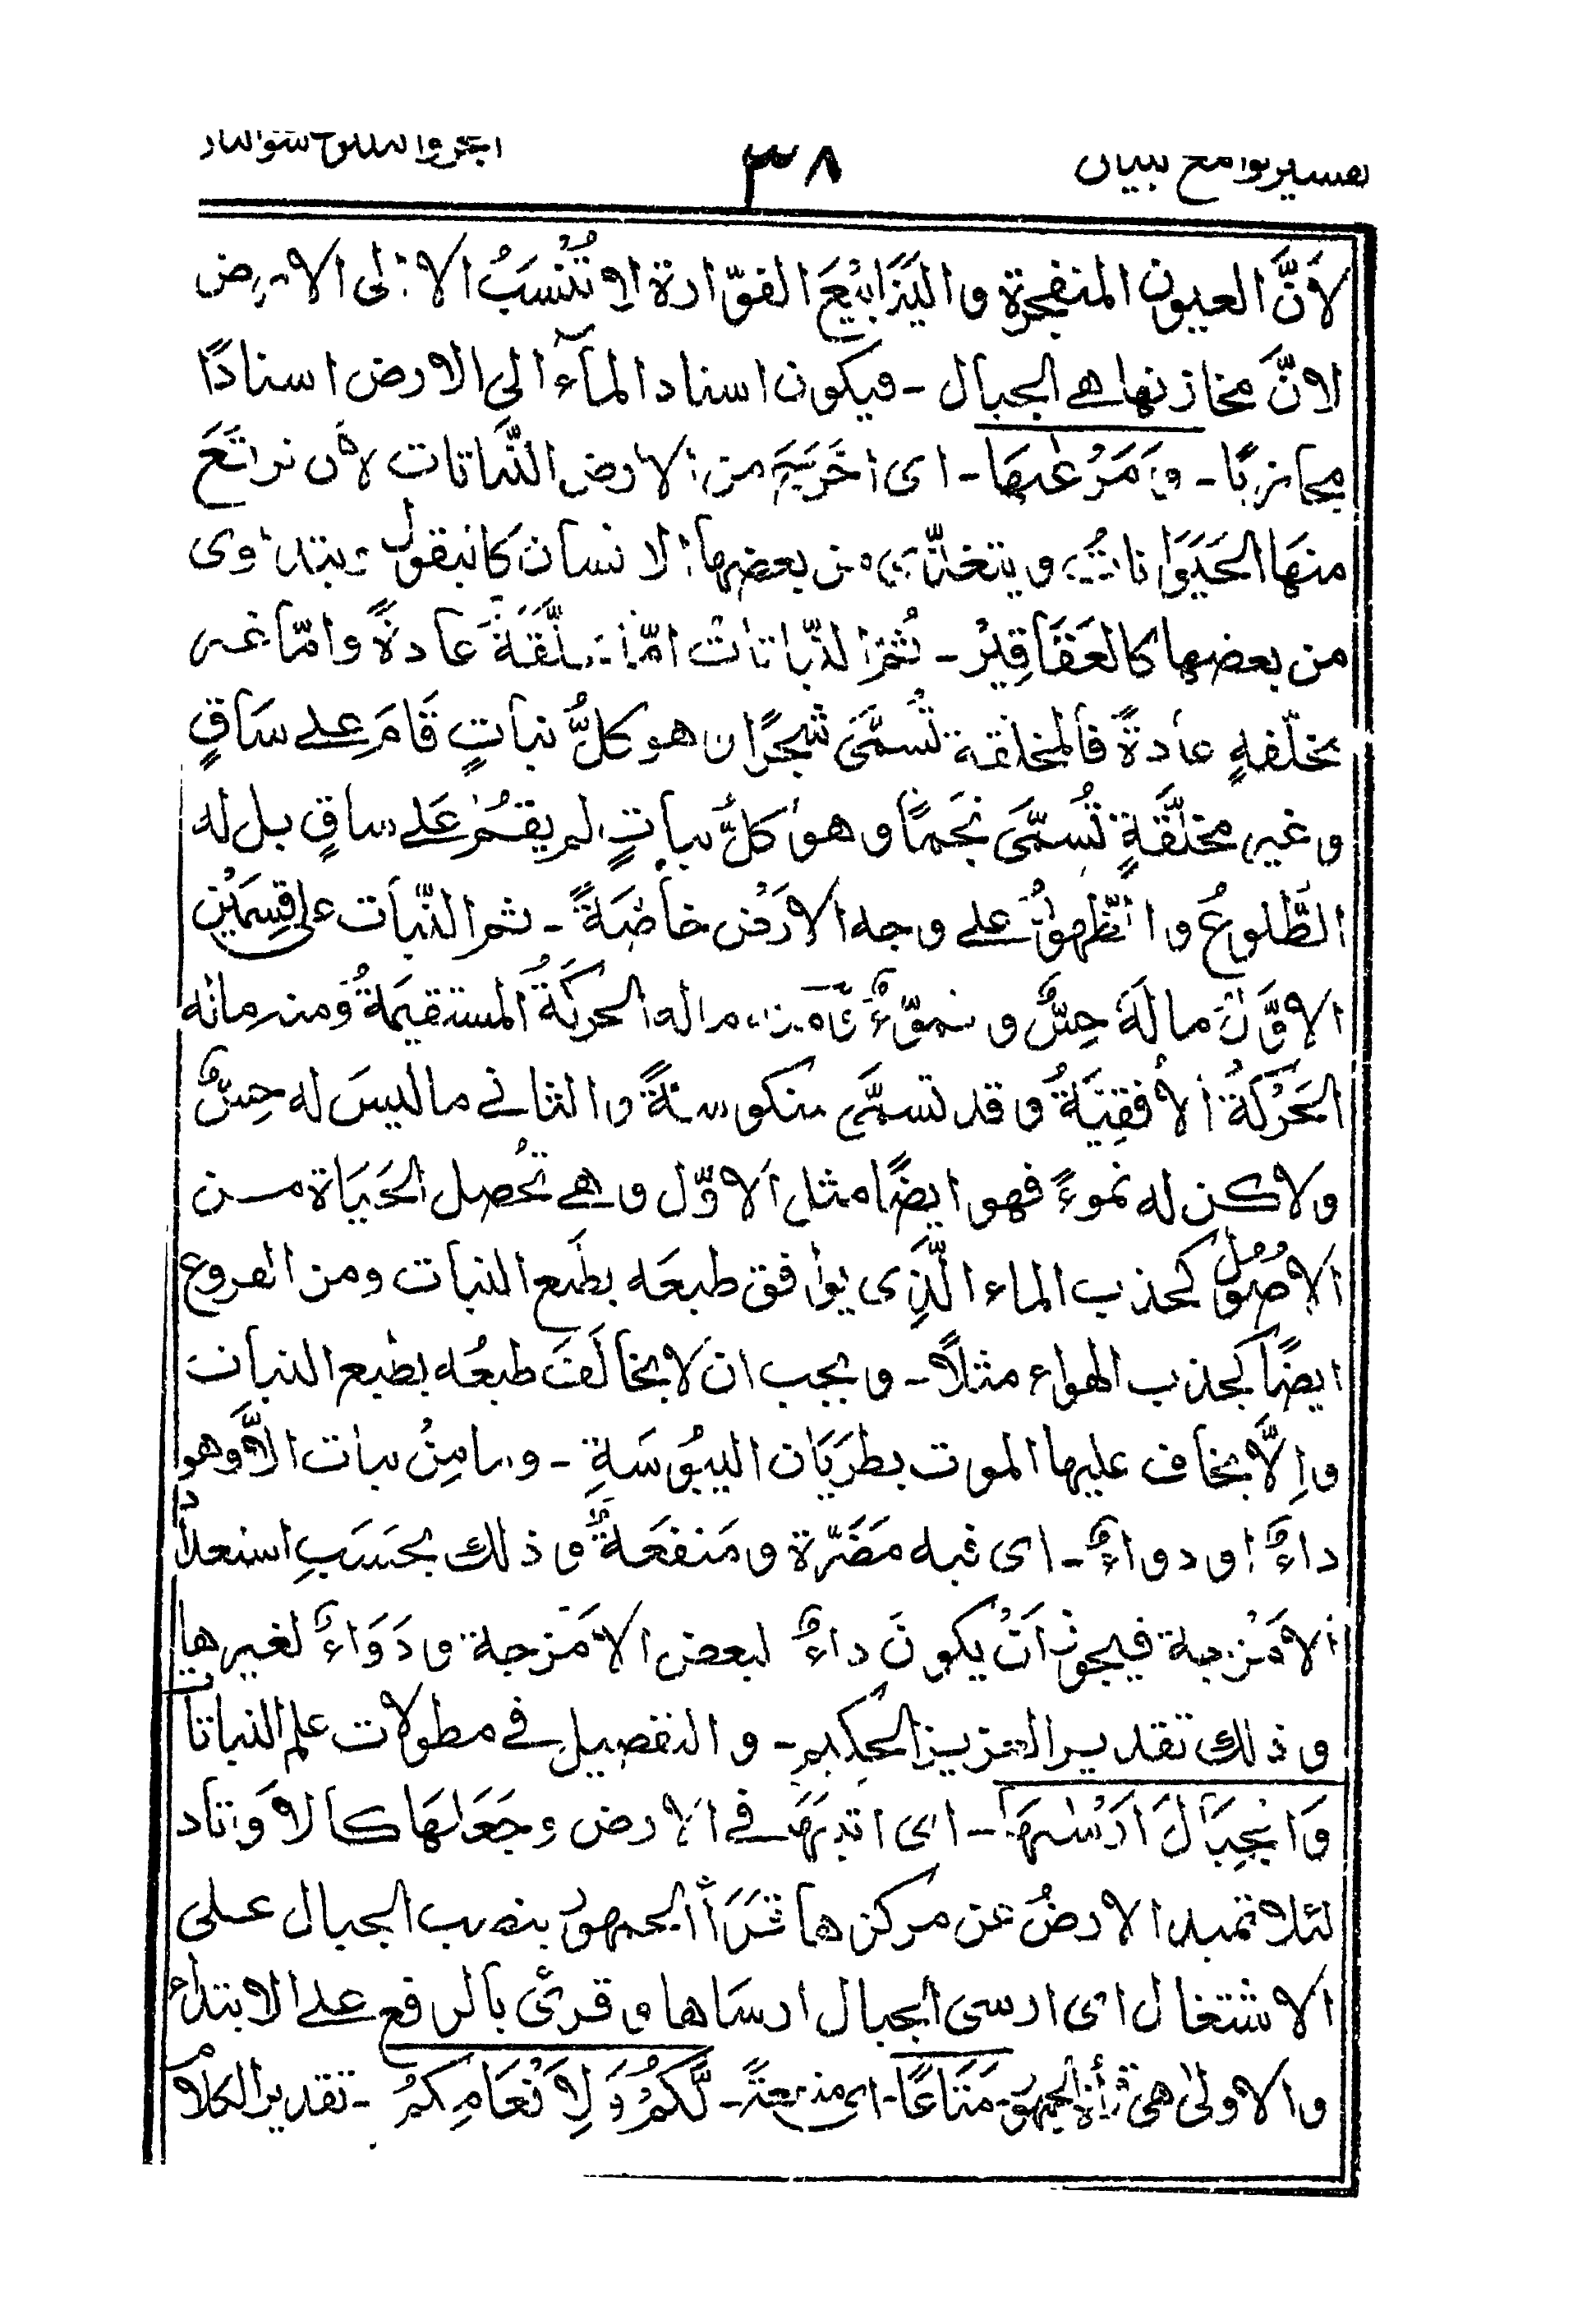 تفسير لوامع البيان ٣٨ الجزء الثلاثون
لأَنَّ العيون المنفجرة واليَنَابِيْعَ الفوّارة لا تُنْسَبُ الا الى الارض
لانَّ مخازنها هے الجبال - فيكون اسناد المآء الى الارض اسنادًا
مجازيًا - وَمَرْعٰىهَا - اى اخرَجَ من الارض النَّباتات لان تراتَعَ
منهَا الحَيَوَاناتُ ويتغذّى من بعضها الانسان كالبقول ويتداوى
من بعضها كالعَقَاقِيْر - ثُمَّ النّباتات امّا مخلَّقَةٌ عادةً وامّا غير
مخلّقةٍ عادةً فالمخلقة تُسمَّىَ شجرًا وهو كلُّ نباتٍ قَامَ علے سَاقٍ
وغير مخلَّقَةٍ تُسمَّىَ نَجَمًا وهو كلُّ نباتٍ لم يقُمْ عَلے ساقٍ بل له
الطَّلوعُ والظّهورُ علے وجه الارَض خاصَةً - ثم النّبات على قِسمَيْنِ
الاوَّلُ ما لَهُ حِسٌّ ونموٌّ فمنه ما له الحركَةُ المستقيمَةُ ومنه ما له
الحَرْكَةُ الأُفقِيَّةُ وقد تسمَّى منكوسةً والثانے ما ليسَ له حِسٌّ
ولاكن له نموءً فهو ايضًا مثل الاوّل وهے تحُصل الحَيَاة مــن
الاصُوُل كجذب الماء الَّذِى يوافق طبعَه بطَبع النبات ومن الفروع
ايضًا كجذب الهواء مثلًا - ويجب ان لا يخالَفَ طبعُه بطبع النبات
واِلَّا يخاف عليها الموت بطرَيَان اليبُوسَةِ - وما مِنْ نبات الَّا وهو
داءٌ او دواءٌ - اى فيه مَضَرّة ومَنفَعَةٌ وذلك بحَسَبِ استعداد
الامْزجة فيجوز اَنْ يكونَ داءٌ لبعض الامَزجة ودَوَاءٌ لغيرها
وذلك تقدير العزيز الحكيم - والتفصيل فے مطولات علم النباتات
وَالْجِبَالَ اَرْسٰىهَا - اى اثبتهَا فے الارض وجَعَلهَا كالاَوتاد
لئلا تميد الارضُ عن مركزها قَرَأَ الجمهورُ بنصب الجبال عــلى
الاشتغال اى ارسى الجبال ارسَاها وقرئ بالرفع علے الابتداء
والاولىٰ هى قرأة الجمهور - مَتَاعًا - اى منفعةً - لَّكُمْ وَلِاَنْعَامِكُمْ - تقدير الكلام